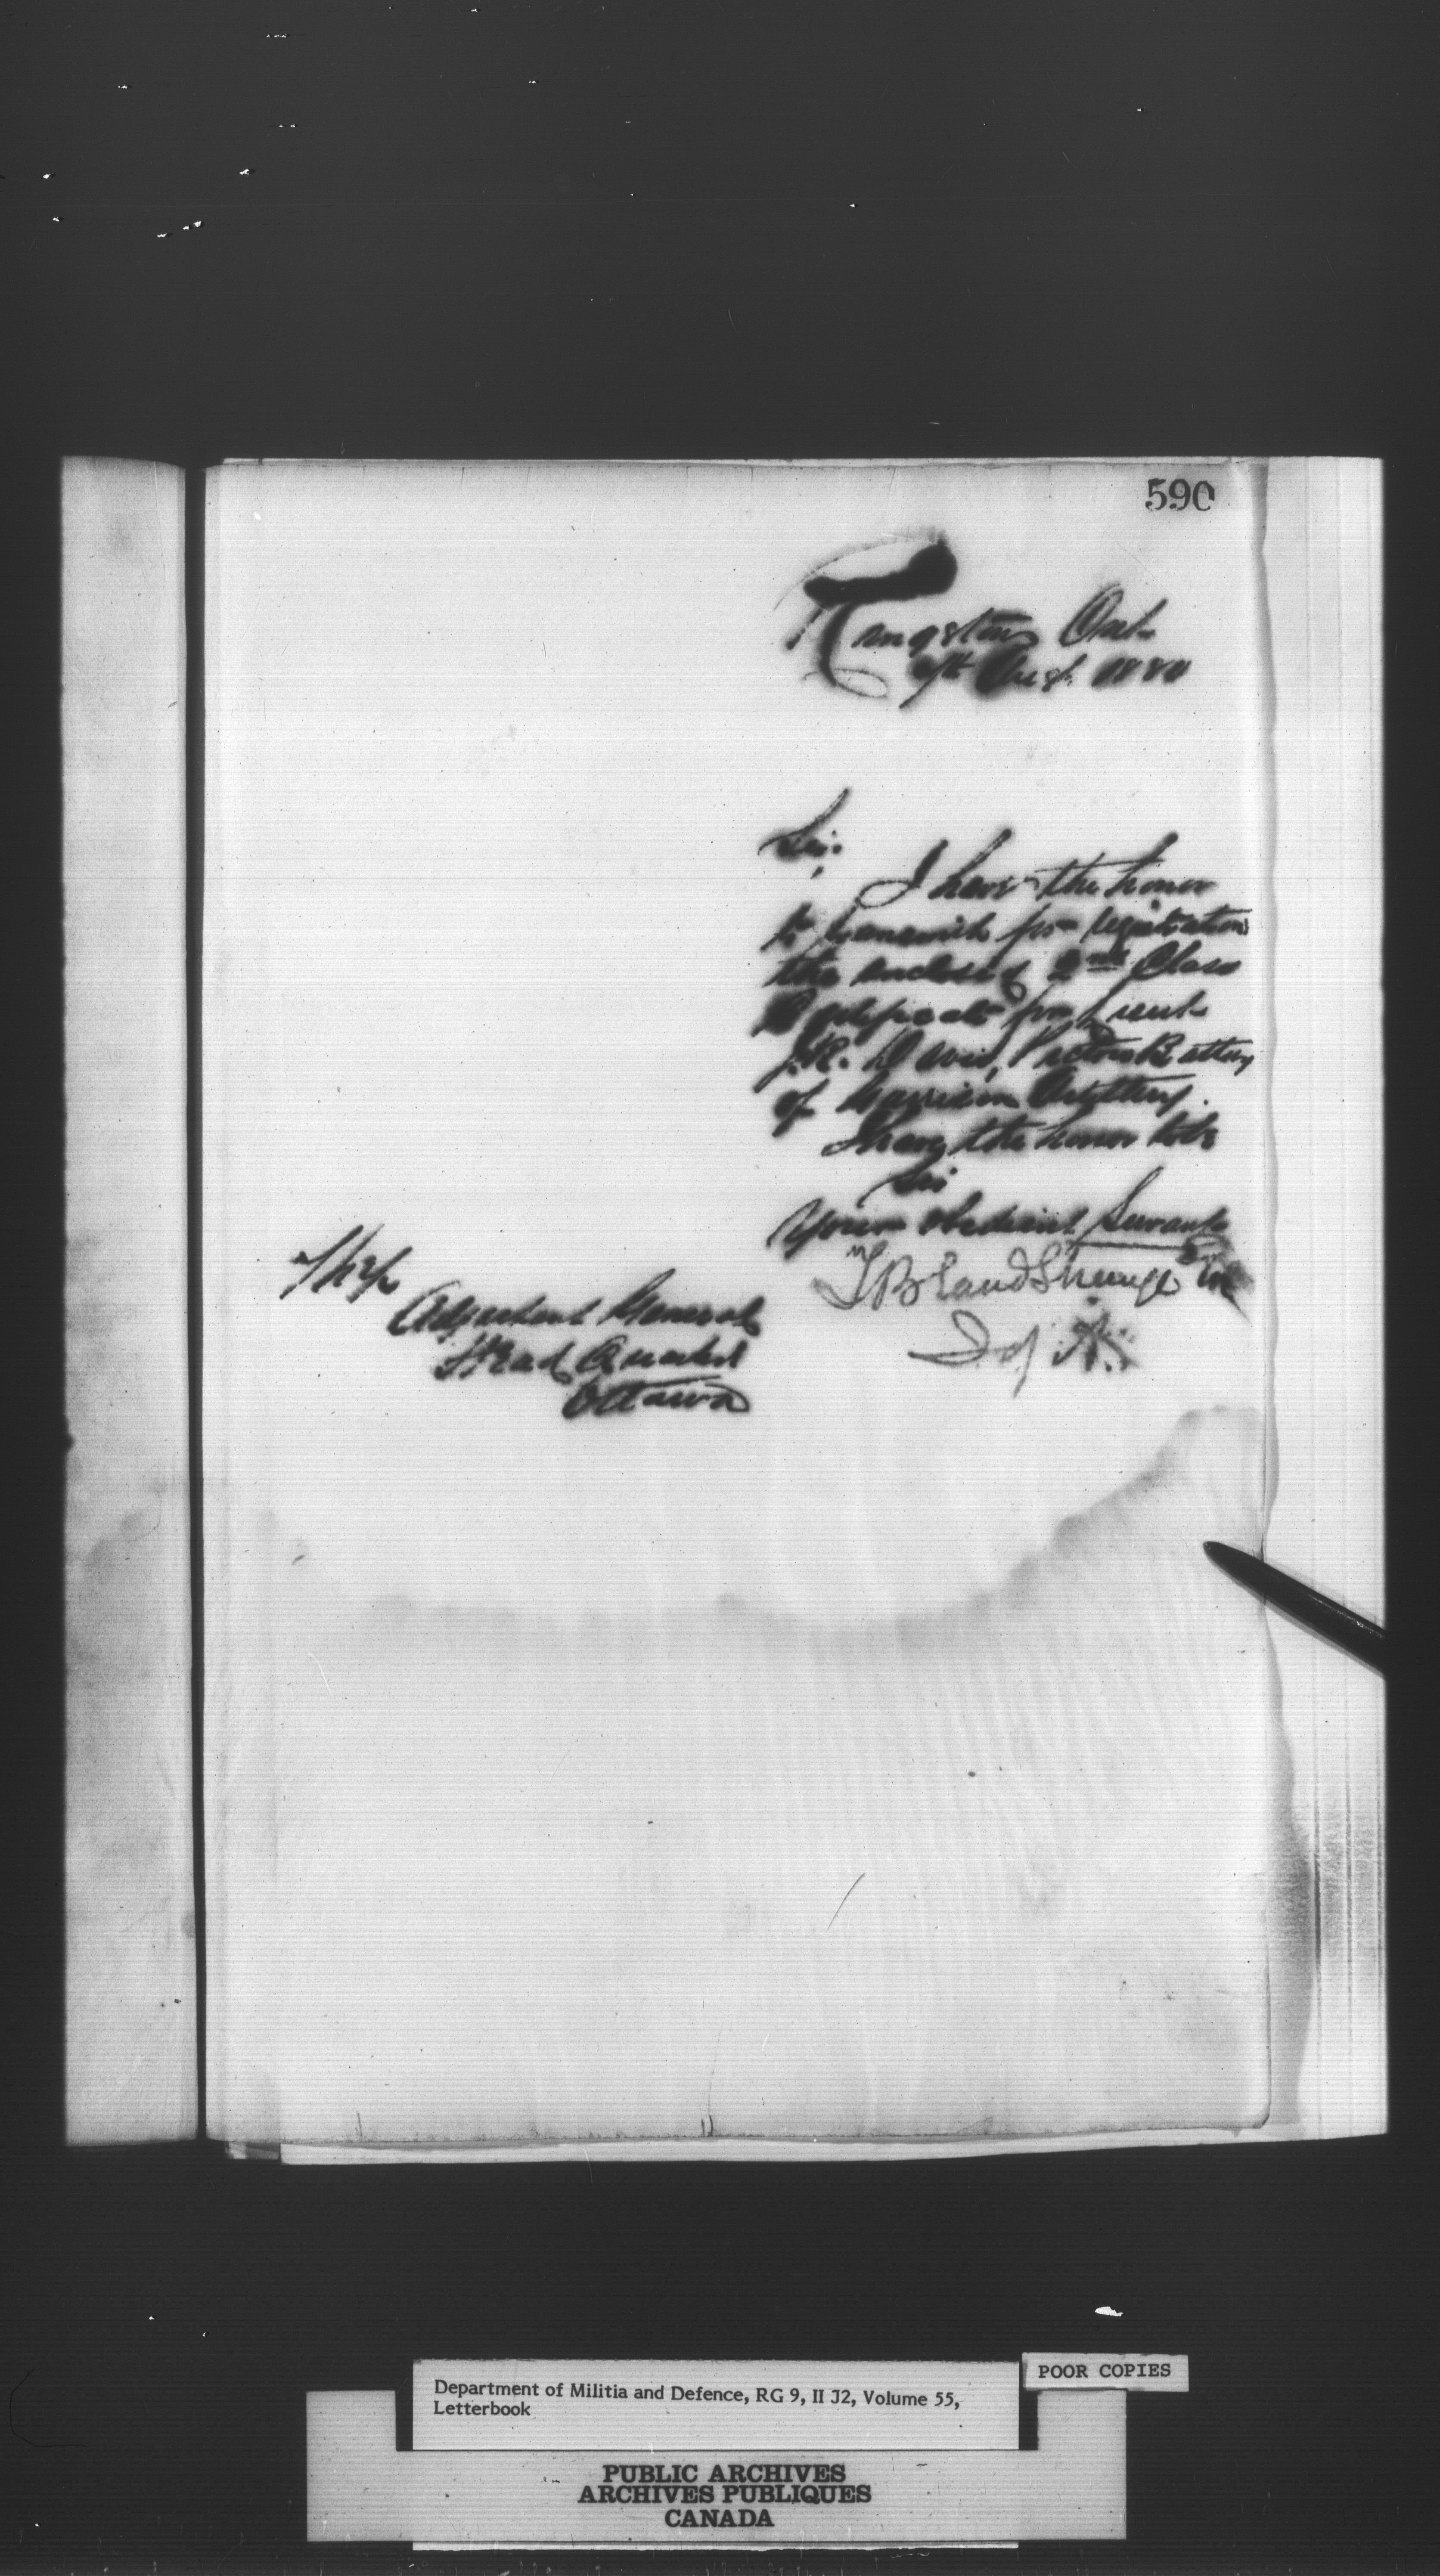 590
Kingston Ont
7th Augt. 1880
Sir,
I have the honor
to herewith for registration
the enclosed 2nd Class
Certificate for Lieut
J.R. Davis, Pictou Battery
of Garrison Artillery.
I have the honor to be
Sir
Your obedient Servant
TBland Strange
The
Adjutant General
Head Quarters
Ottawa
POOR COPIES
Department of Militia and Defence, RG 9, II J2, Volume 55,
Letterbook
PUBLIC ARCHIVES
ARCHIVES PUBLIQUES
CANADA